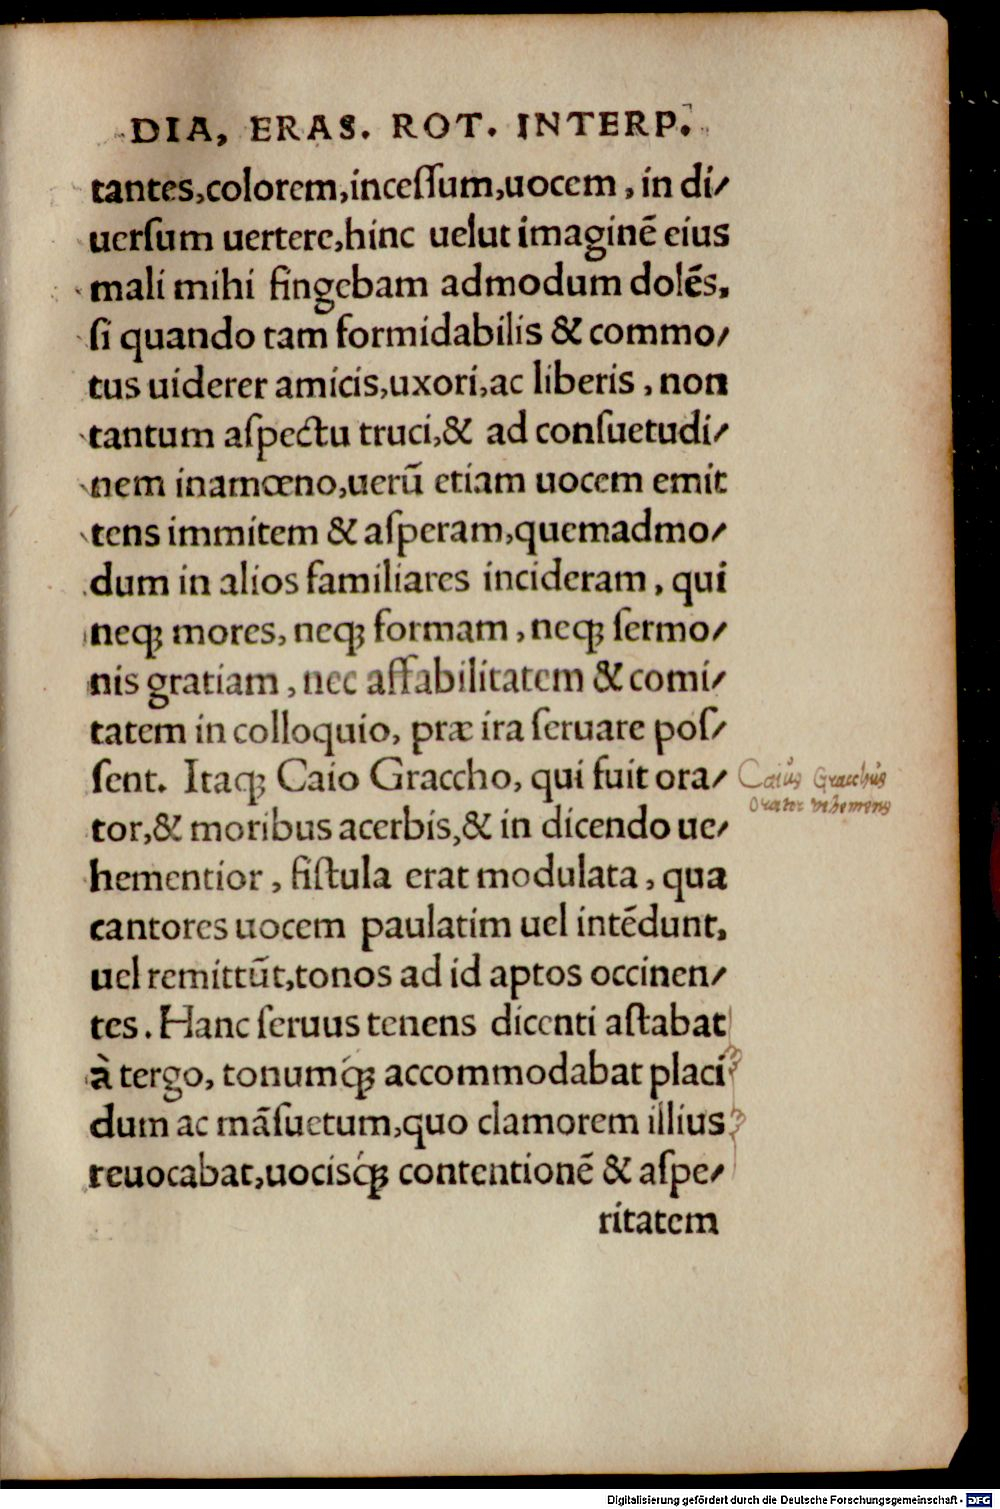 DIA, ERAS. ROT. INTERP.
tantes,colorem,inceſſum,uocem, in di/
uerſum uertere,hinc uelut imaginē eius
mali mihi fingebam admodum dolēs,
ſi quando tam formidabilis & commo/
tus uiderer amicis,uxori,ac liberis, non
tantum aſpectu truci,& ad conſuetudi/
nem inamœno,uerū etiam uocem emit
tens immitem & aſperam,quemadmo/
dum in alios familiares incideram, qui
neqꝫ mores, neqꝫ formam, neqꝫ ſermo/
nis gratiam, nec affabilitatem & comi/
tatem in colloquio, præ ira ſeruare poſ/
ſent. Itaqꝫ Caio Graccho, qui fuit ora/
Caius Gracchus
Orator vehemens
tor,& moribus acerbis,& in dicendo ue/
hementior, fiſtula erat modulata, qua
cantores uocem paulatim uel intēdunt,
uel remittūt,tonos ad id aptos occinen/
tes. Hanc ſeruus tenens dicenti aſtabat
à tergo, tonumq́ꝫ accommodabat placi
dum ac māſuetum,quo clamorem illius
reuocabat,uociſq́ꝫ contentionē & aſpe/
ritatem
Digitalisierung gefördert durch die Deutsche Forschungsgemeinschaft - DFG